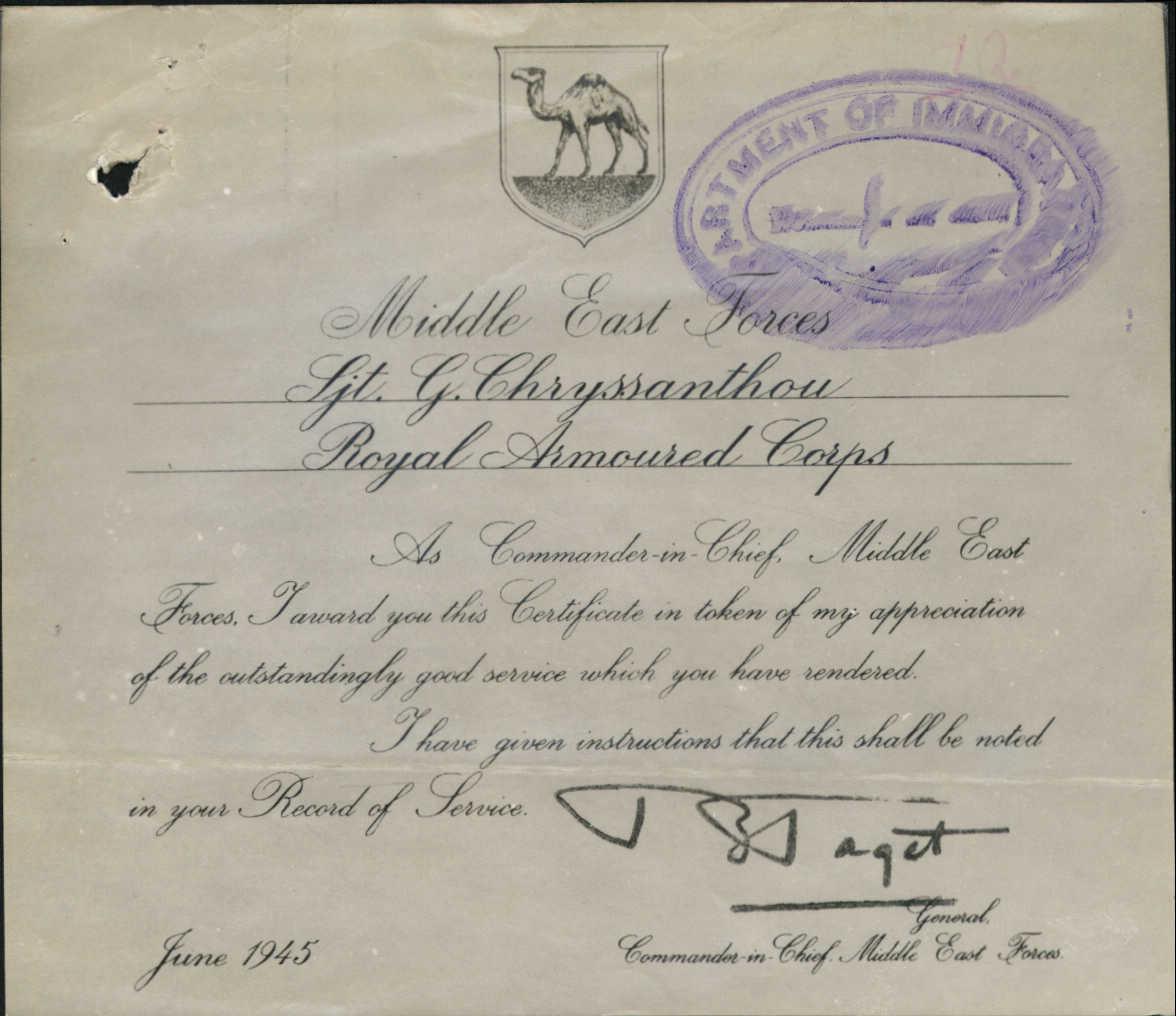 12
ARTMENT OF IMMIGRA
Middle East Forces
Sjt. G. Chryssanthou
Royal Armoured Corps
As Commander-in-Chief, Middle East
Forces, I award you this Certificate in token of my appreciation
of the outstandingly good service which you have rendered.
I have given instructions that this shall be noted
in your Record of Service.
B Paget
General,
June 1945
Commander-in-Chief. Middle East Forces.